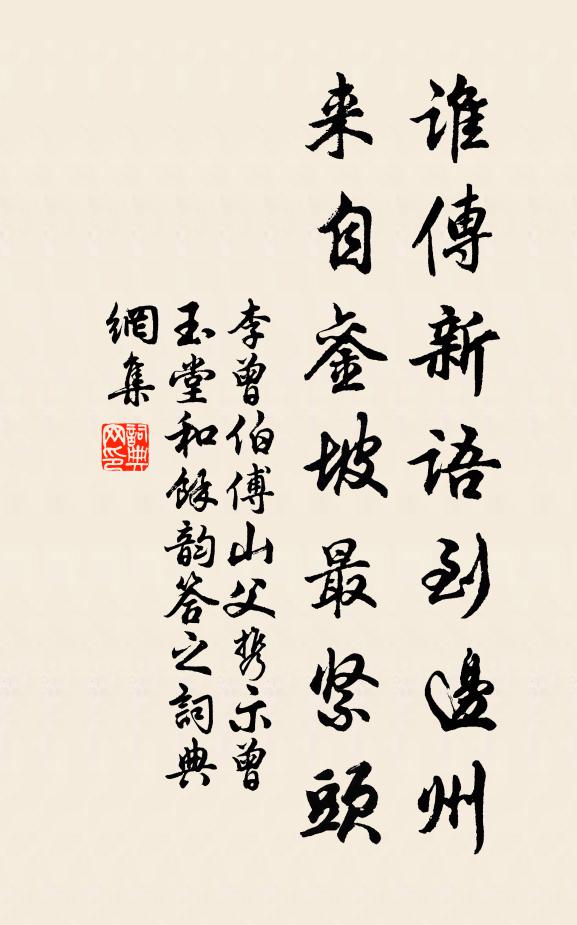 誰傳新語到邊州
来自銮坡最紧頭
李曾伯傅山父携示曾
玉堂和餘韵答之詞典
網集
詞典
网印